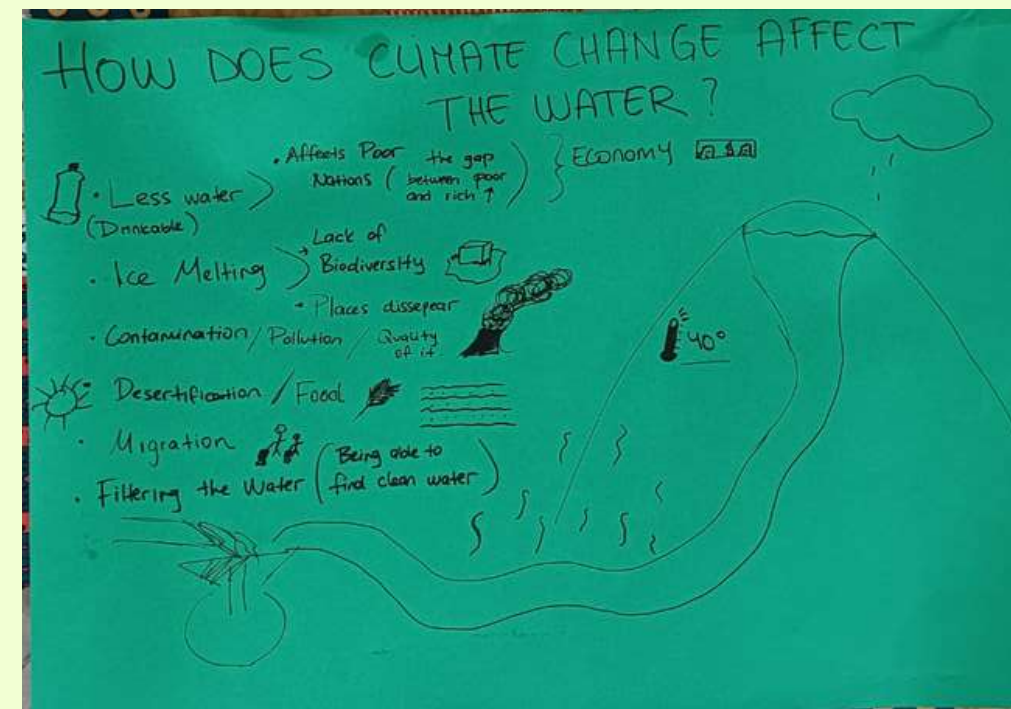 HOW DOES CLIMATE CHANGE AFFECT
THE WATER?
• Less water > • Affects Poor Nations (the gap between poor and rich ↑) } Economy
(Drinkable)
• Ice Melting > → Lack of Biodiversity
• Places dissepear
• Contamination / Pollution / Quality of it
• Desertification / Food
• Migration
• Filtering the Water (Being able to find clean water)
40°